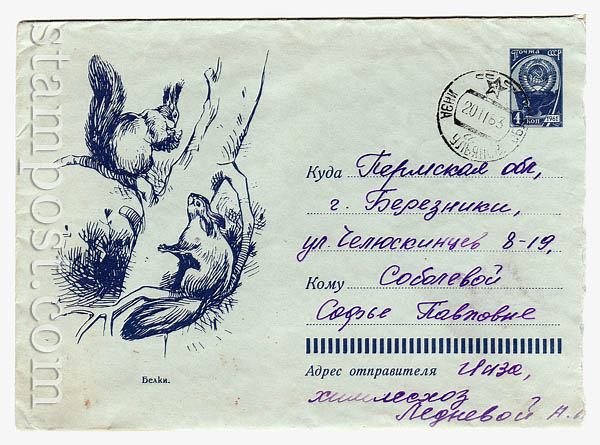 почта СССР
4 коп 1961
20 11 63
Куда Пермская обл,
г. Березники,
ул. Челюскинцев 8-19,
Кому Соболевой
Софье Павловне
Адрес отправителя г Низа,
химлесхоз
Ледневой Н.
Белки.
stampost.com